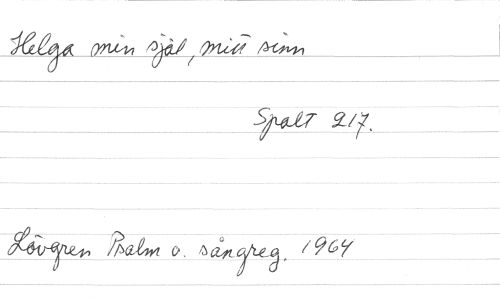 Helga min själ, mitt sinn
Spalt 217.
Lövgren Psalm o. sångreg. 1964